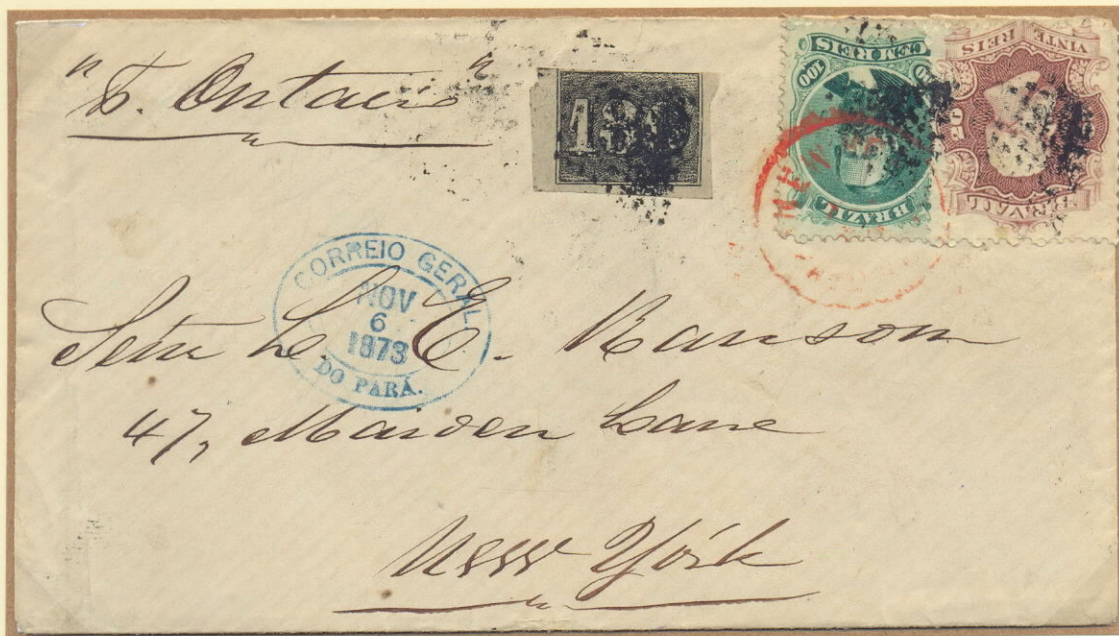 "S. Ontario"
180
CEM REIS
100
BRAZIL
VINTE REIS
20
BRAZIL
NEW
CORREIO GERAL
NOV
6
1873
DO PARÁ.
L. E. Ransom
47, Maiden Lane
New York